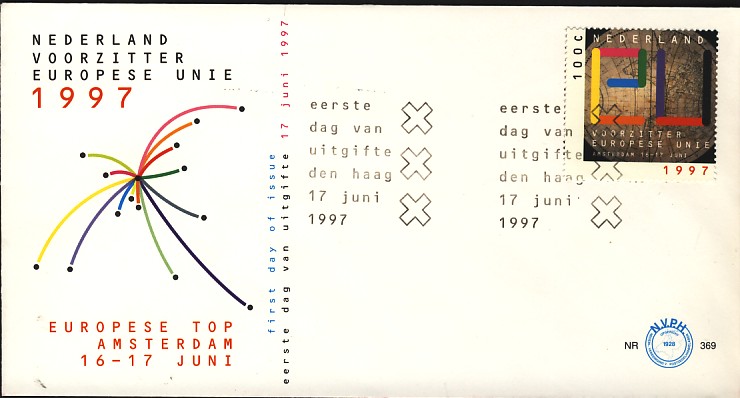 NEDERLAND
VOORZITTER
EUROPESE UNIE
1997
EUROPESE TOP
AMSTERDAM
16-17 JUNI
first day of issue 17 juni 1997
eerste dag van uitgifte
eerste
dag van
uitgifte
den haag
17 juni
1997
eerste
dag van
uitgifte
den haag
17 juni
1997
100C
NEDERLAND
VOORZITTER
EUROPESE UNIE
AMSTERDAM 16-17 JUNI
1997
N.V.P.H.
1928
NR 369